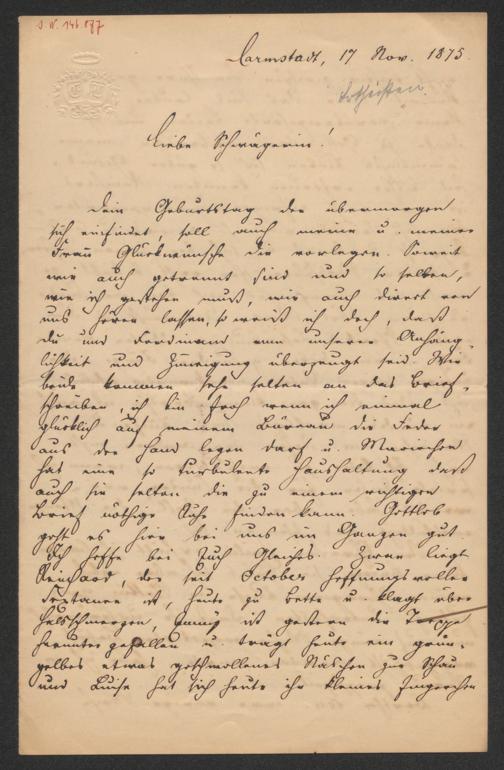 J. N. 146.877
Darmstadt, 17 Nov. 1875.
Liebe Schwägerin!
Dein Geburtstag der übermorgen
sich einfindet, soll auch meine u. meiner
Frau Glückwünsche Dir vorlegen. Soweit
wir auch getrennt sind und so selten,
wie ich gestehen muß, wir auch direct von
uns hören lassen, so weiß ich doch, daß
Du und Ferdinand von unserer Anhäng-
lichkeit und Zuneigung überzeugt seid. Wir
beide kommen sehr selten an das Brief-
schreiben, ich bin froh wenn ich einmal
glücklich auf meinem Büreau die Feder
aus der Hand legen darf u. Mariechen
hat eine so turbulente Haushaltung daß
auch sie selten die zu einem richtigen
Brief nöthige Ruhe finden kann. Gottlob
geht es hier bei uns im Ganzen gut.
Ich hoffe bei Euch Gleiches. Zwar liegt
Reinhard, der seit October hoffnungsvoller
Sextaner ist, heute zu Bette u. klagt über
Halsschmerzen, ist gestern die Treppe
herunter gefallen u. trägt heute ein grün-
gelbes etwas geschwollenes Näschen zur Schau
und Luise hat sich heute ihr kleines Fingerchen